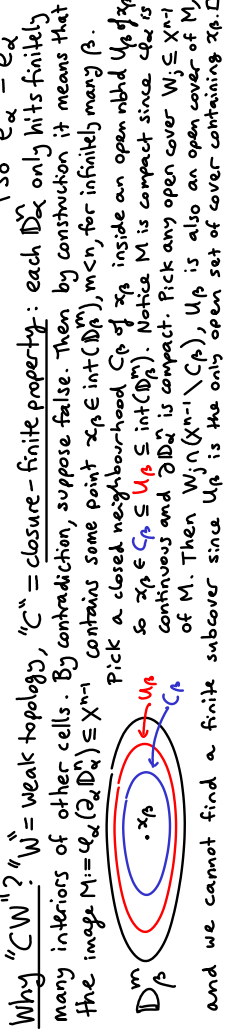 so e_α = e_α
Why "CW"? "W" = weak topology, "C" = closure-finite property: each 𝔻ⁿ_α only hits finitely
many interiors of other cells. By contradiction, suppose false. Then by construction it means that
the image M := φ_α(∂_α𝔻ⁿ_α) ⊆ Xⁿ⁻¹ contains some point x_β ∈ int(𝔻ᵐ_β), m<n, for infinitely many β.
Pick a closed neighbourhood C_β of x_β inside an open nbhd U_β of x_β
so x_β ∈ C_β ⊆ U_β ⊆ int(𝔻ᵐ_β). Notice M is compact since φ_α is
continuous and ∂𝔻ⁿ_α is compact. Pick any open cover W_j ⊆ Xⁿ⁻¹
of M. Then W_j ∩ (Xⁿ⁻¹ \ C_β), U_β is also an open cover of M,
and we cannot find a finite subcover since U_β is the only open set of cover containing x_β. □
𝔻ᵐ_β
· x_β
U_β
C_β